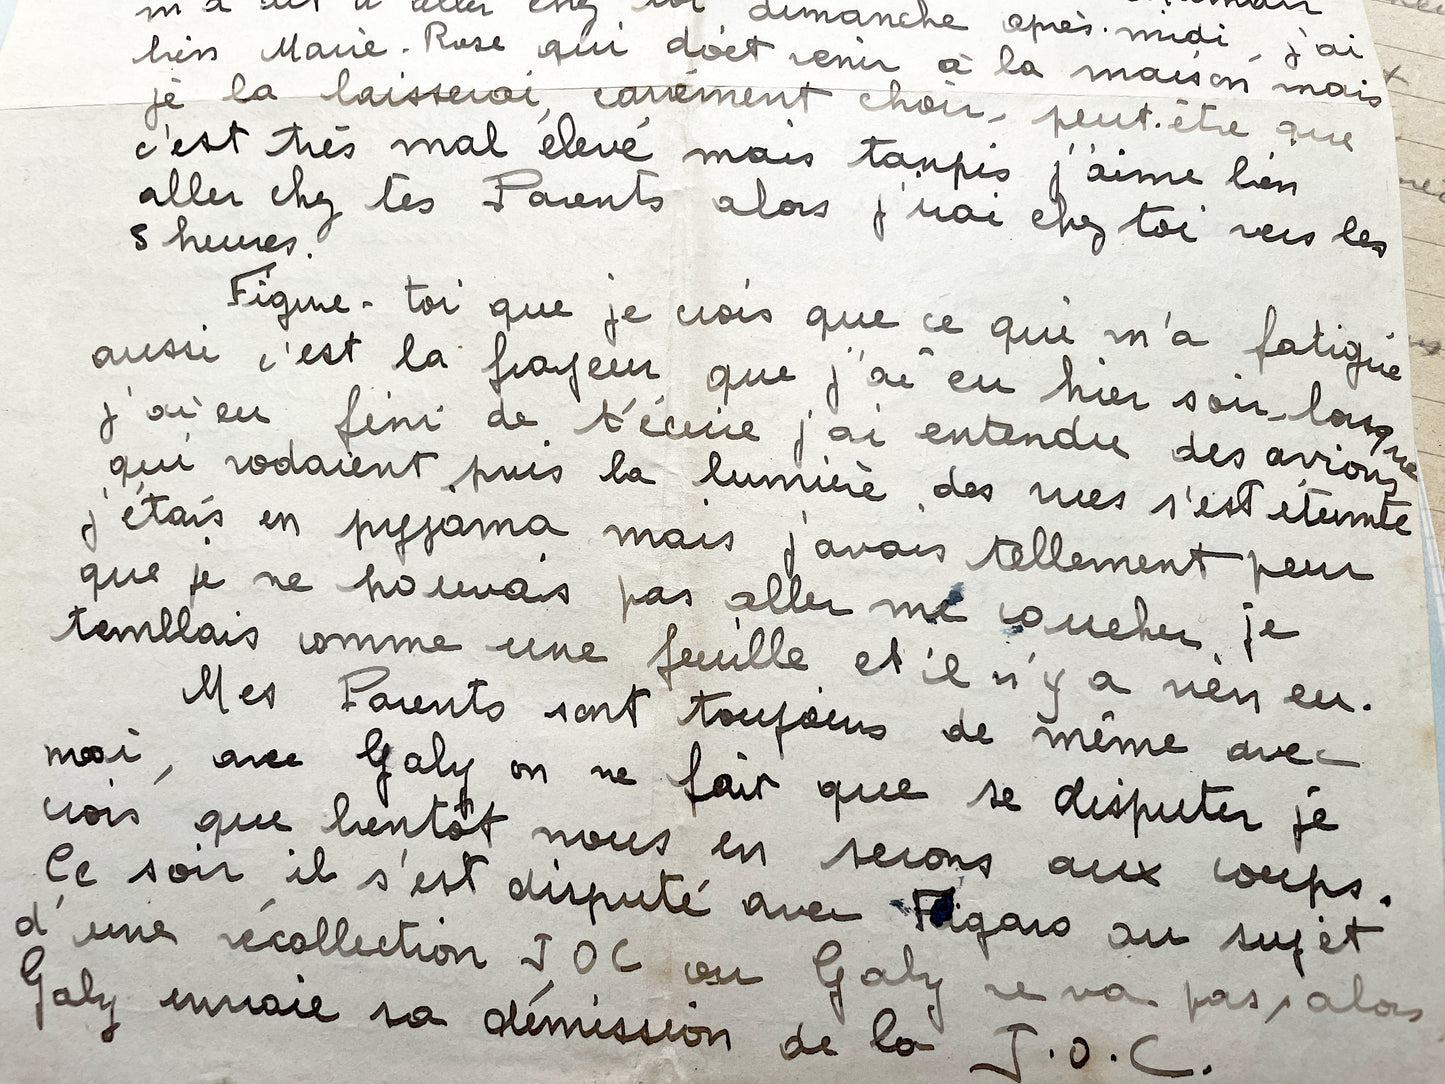 m'a dit d'aller chez toi dimanche après-midi, j'ai
bien Marie-Rose qui doit venir à la maison mais
je la laisserai carrément choir, peut-être que
c'est très mal élevé mais tanpis j'aime bien
aller chez tes Parents alors j'irai chez toi vers les
3 heures.
Figure-toi que je crois que ce qui m'a fatigué
aussi c'est la frayeur que j'ai eu hier soir, lorsque
j'ai eu fini de t'écrire j'ai entendu des avions
qui rodaient puis la lumière des rues s'est éteinte
j'étais en pyjama mais j'avais tellement peur
que je ne pouvais pas aller me coucher je
temblais comme une feuille et il n'y a rien eu.
Mes Parents sont toujours de même avec
moi, avec Galy on ne fait que se disputer je
crois que bientôt nous en serons aux coups.
Ce soir il s'est disputé avec Figaro au sujet
d'une récollection JOC ou Galy ne va pas, alors
Galy envoie sa démission de la J.O.C.